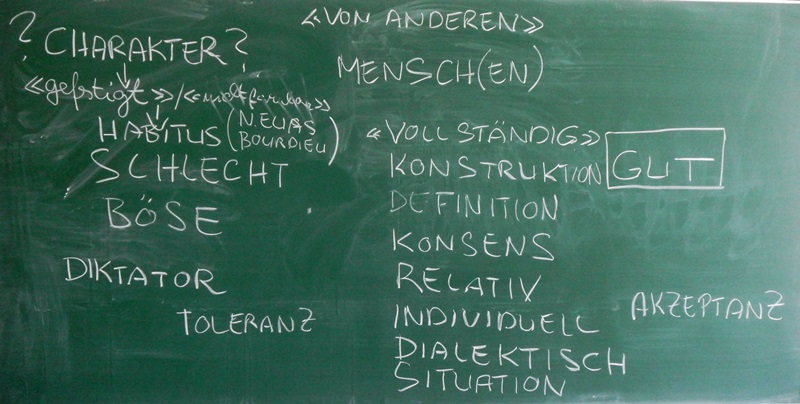 ? CHARAKTER?
«gefestigt»/«nicht formbar»
HABITUS (N. ELIAS
BOURDIEU)
SCHLECHT
BÖSE
DIKTATOR
TOLERANZ
«VON ANDEREN»
MENSCH(EN)
«VOLLSTÄNDIG»
KONSTRUKTION GUT
DEFINITION
KONSENS
RELATIV
INDIVIDUELL
AKZEPTANZ
DIALEKTISCH
SITUATION